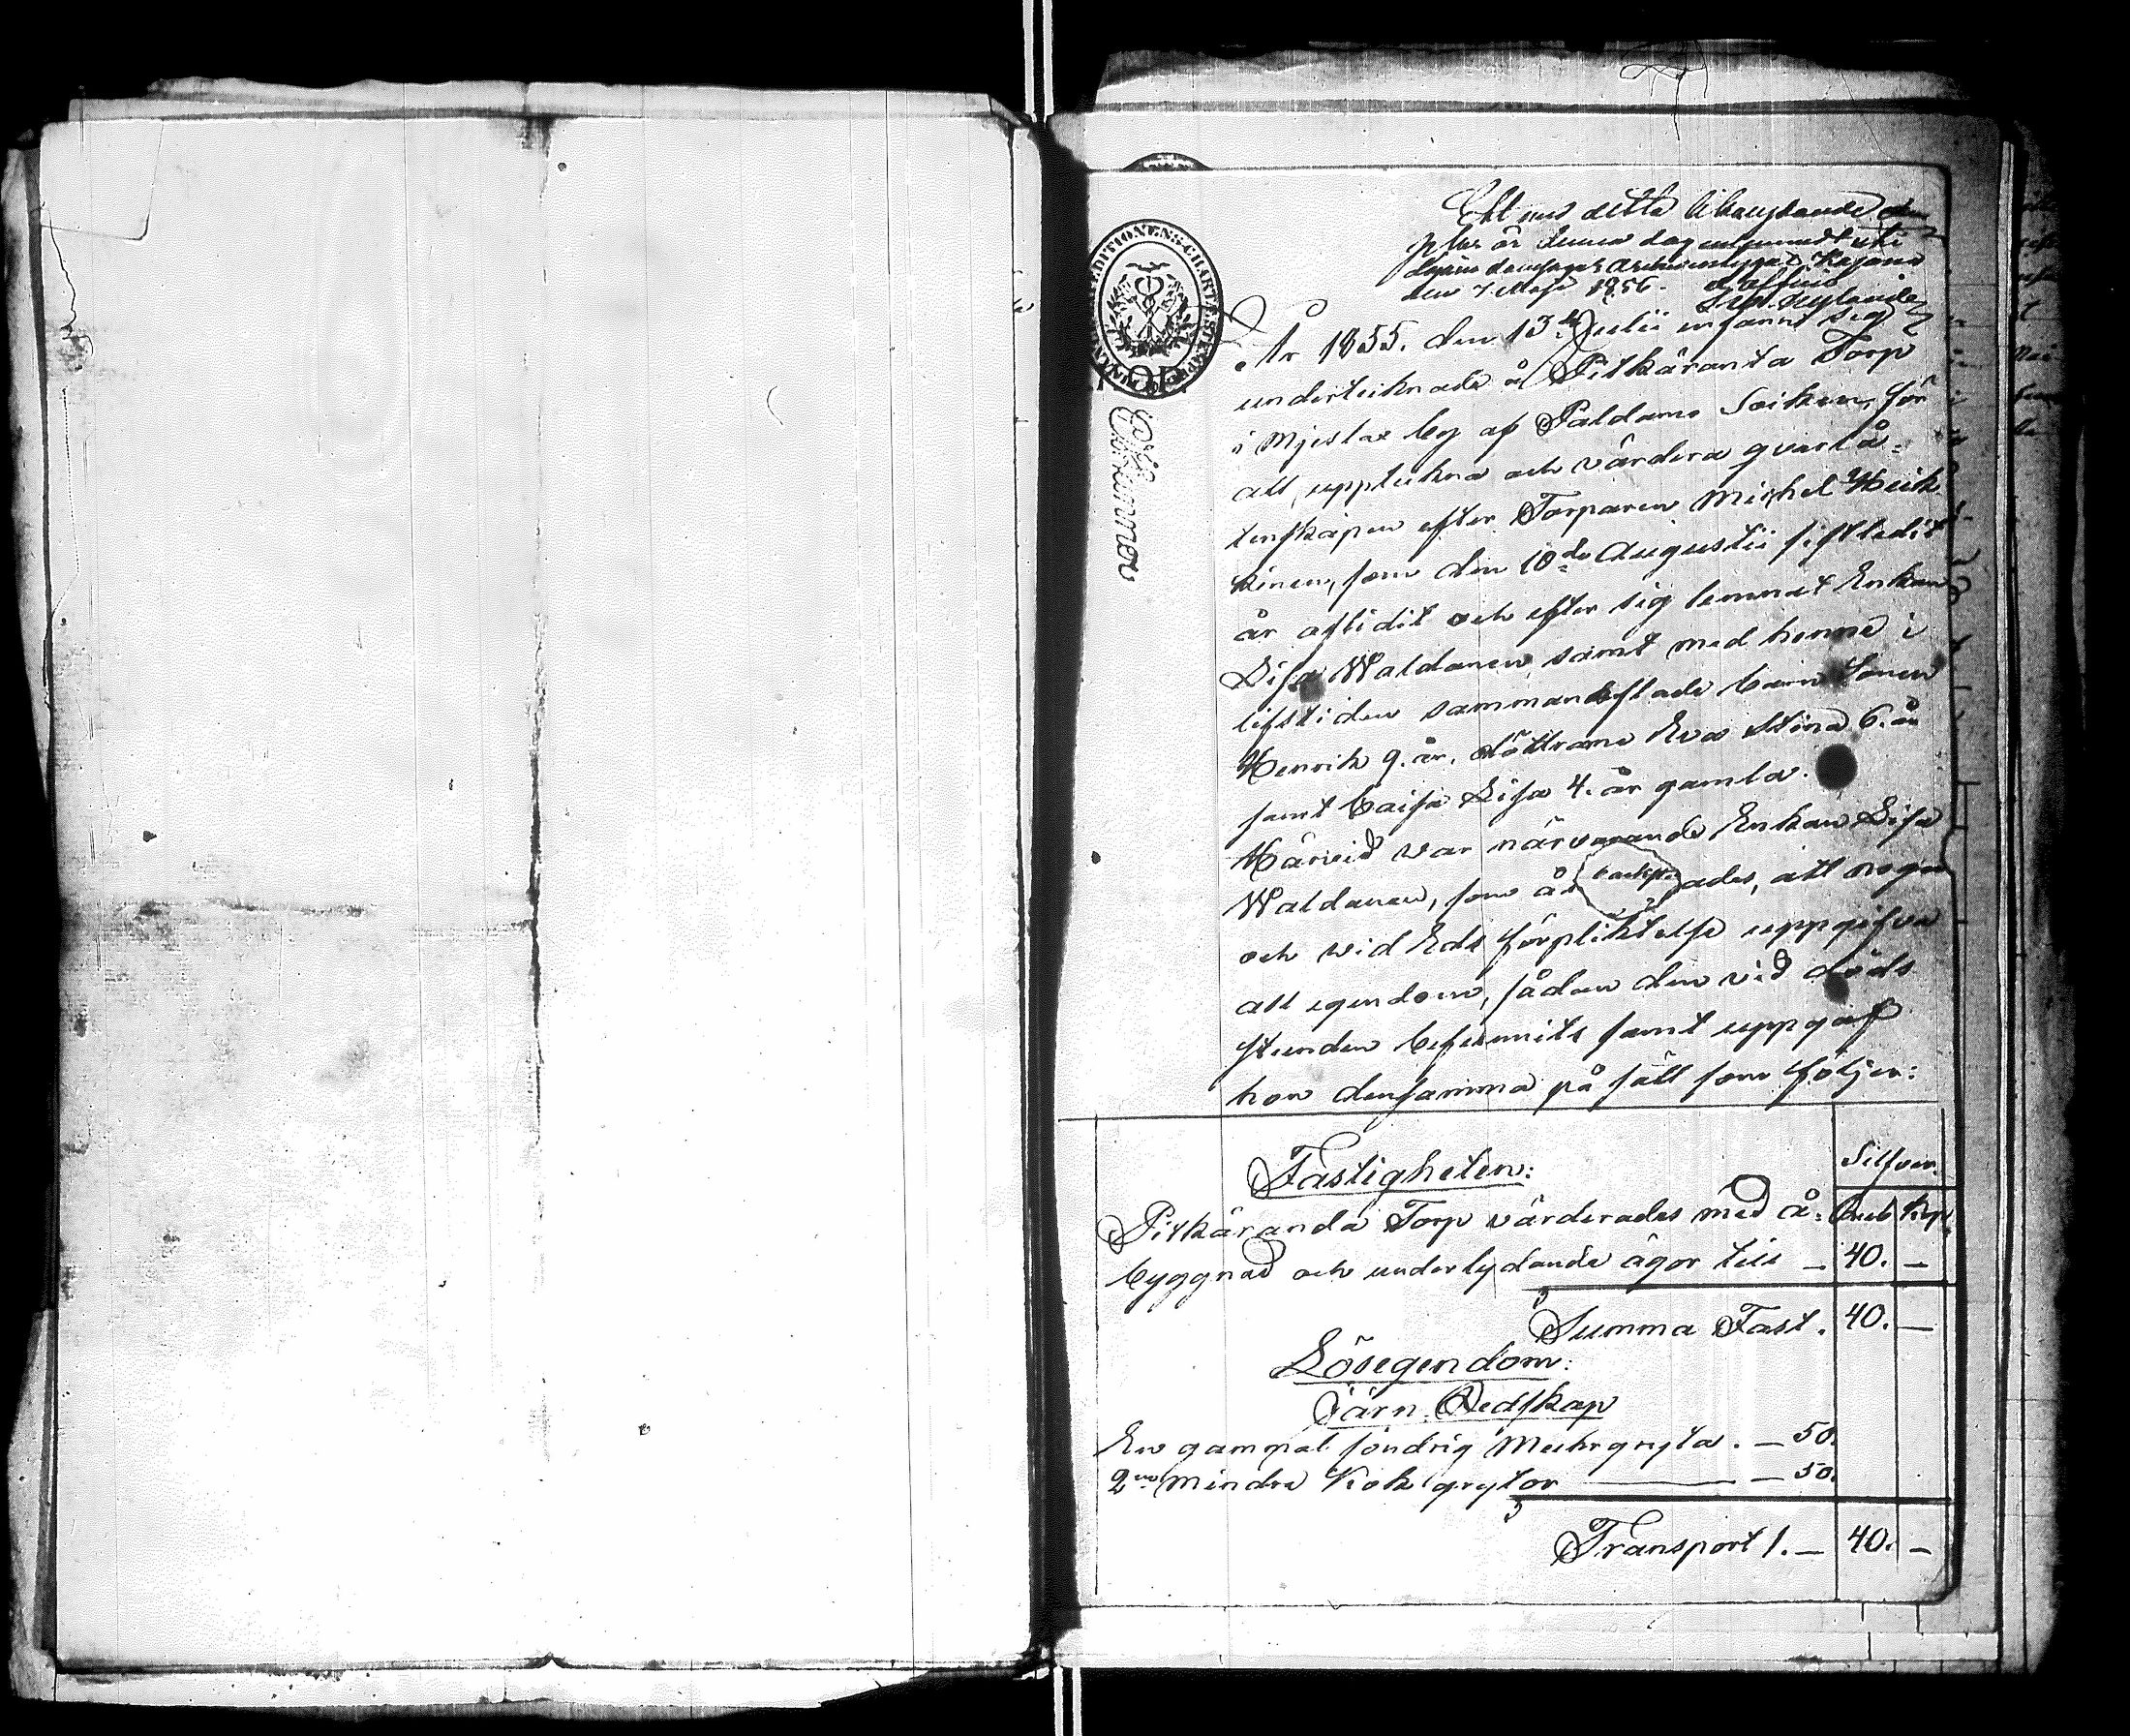 Ett med detta likalydande
plar är denna dag
Kajana
den 7 Maji 1856.
År 1855. den 13de Julii infann sig
undertecknade å Pitkäranta Torp
i Mjeslax by af Paldamo Socken, för
att upptekna och värdera qvarlå-
tenskapen efter Torparen Michel Heik
kinen, som den 10de Augustii sistledit
år aflidit och efter sig lemnat Enkan
Lisa Waldanen samt med henne i
lifstiden sammanaflade barn Sonen
Henrik 9. år, döttrarne Eva Stina 6. år
samt Caisa Lisa 4. år gamla.
Härvid var närvarande Enkan Lisa
Waldanen, som ades, att noga
och vid Eds förpliktelse uppgifva
all egendom, sådan den vid döds
stunden befunnits samt uppgaf
hon densamma på sätt som följer:
Fastigheten:
Silfver.
Pitkäranda Torp värderades med å- Rub Kop
byggnad och underlydande ägor till — 40. —
Summa Fast. 40. —
Lösegendom:
Järn Redskap
En gammal söndrig Muhrgryta. — 50.
2ne mindre Kok grytor — 50.
Transport 1. — 40. —